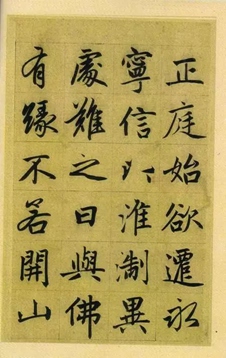 正庭始欲遷永
寧信以淮淛異
處難之日與佛
有緣不若開山